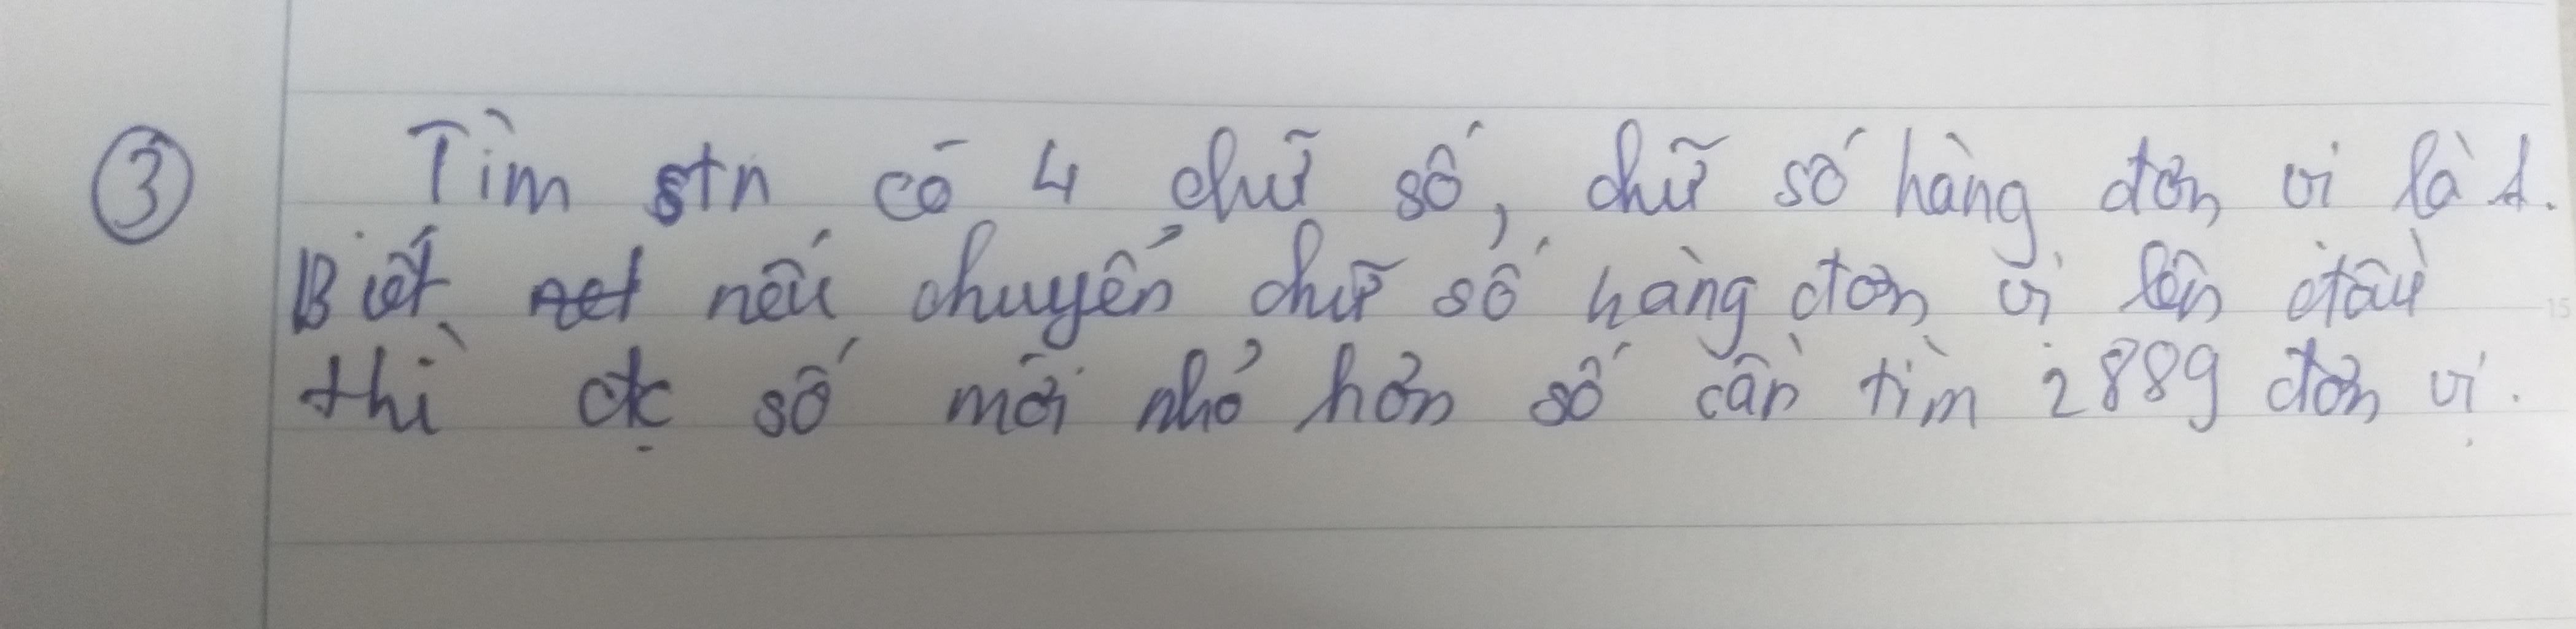 ③ Tìm stn có 4 chữ số, chữ số hàng đơn vi là 1.
Biết nếu chuyển chữ số hàng đơn vị lên đầu
thì đc số mới nhỏ hơn số cần tìm 2889 đơn vị.
15